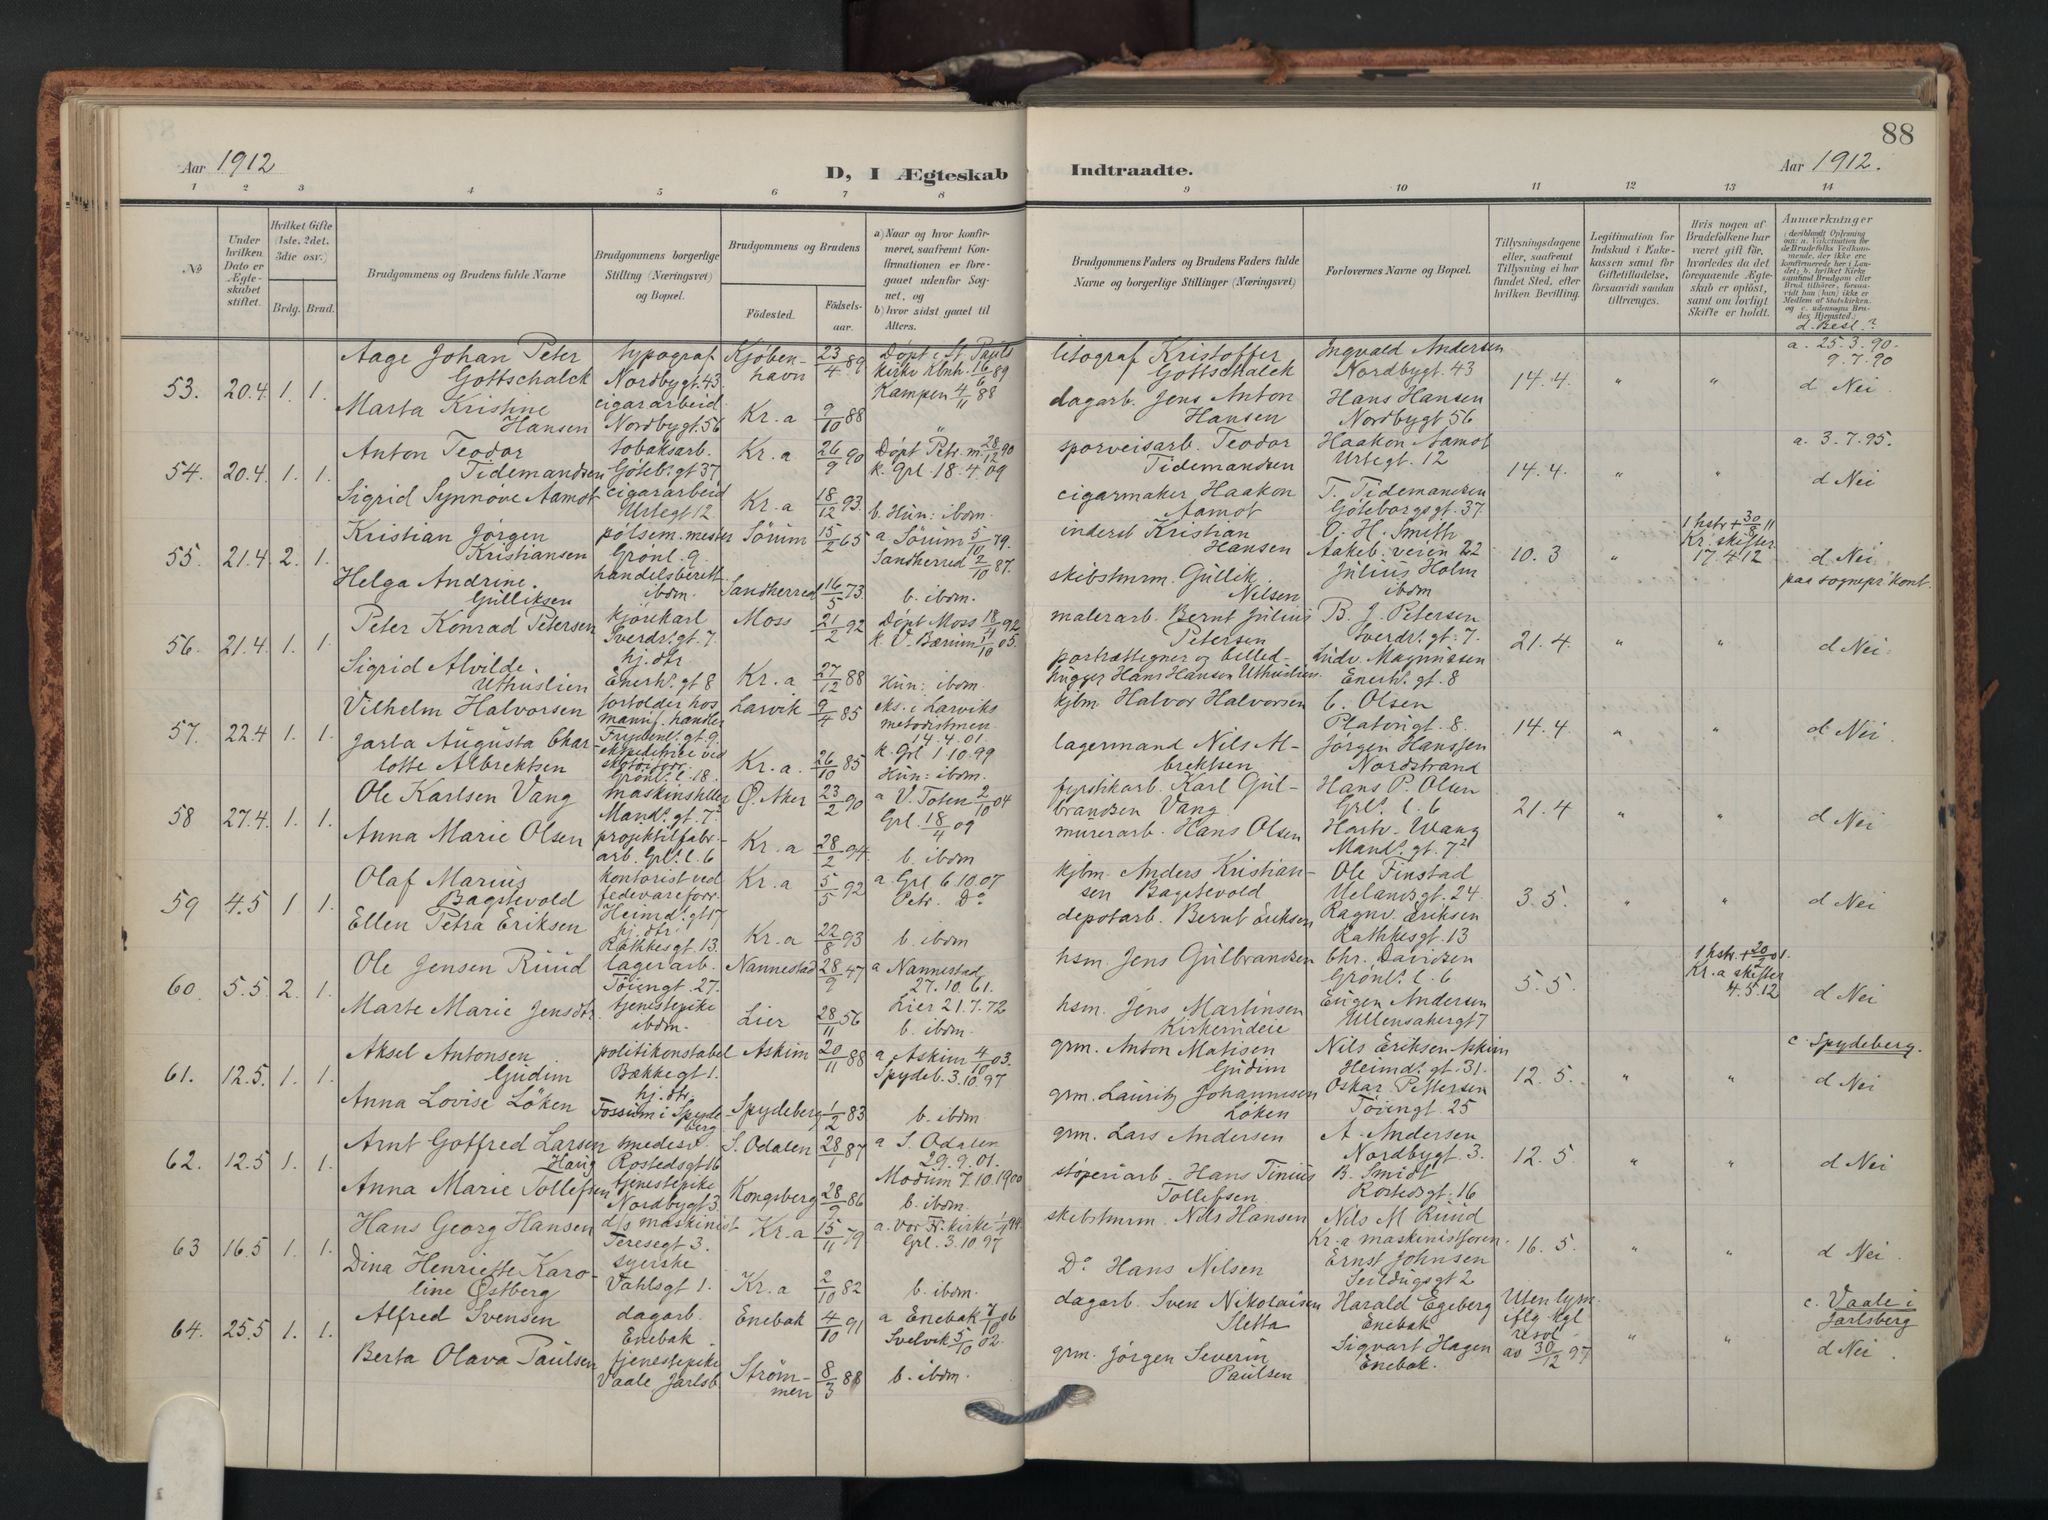 88
Aar 1912
D, I Ægteskab
Indtraadte.
Aar 1912.
1 2 3 4 5 6 7 8 9 10 11 12 13 14
№
Under hvilken Dato er Ægteskabet stiftet.
Hvilket Gifte (1ste, 2det, 3die osv.)
Brdg. Brud.
Brudgommens og Brudens fulde Navne
Brudgommens borgerlige Stilling (Næringsvei) og Bopæl.
Brudgommens og Brudens
Födested.
Födselsaar.
a) Naar og hvor konfirmeret, saafremt Konfirmationen er foregaaet udenfor Sognet, og
b) hvor sidst gaaet til Alters.
Brudgommens Faders og Brudens Faders fulde Navne og borgerlige Stillinger (Næringsvei)
Forlovernes Navne og Bopæl.
Tillysningsdagene eller, saafremt Tillysning ei har fundet Sted, efter hvilken Bevilling.
Legitimation for Indskud i Enkekassen samt for Giftetilladelse, forsaavidt saadan tiltrænges.
Hvis nogen af Brudefolkene har været gift för, hvorledes da det foregaaende Ægteskab er oplöst, samt om lovligt Skifte er holdt.
Anmærkninger
d. Besl.?
53. 20.4. 1. 1.
Aage Johan Peter Gottschalck
typograf Nordbygt. 43
Kjøbenhavn 23/4 89
Døpt i St. Pauls kirke Kbnh. 16/6 89
litograf Kristoffer Gottschalck
Ingvald Andersen Nordbygt. 43
14.4. " "
a. 25.3.90. 9.7.90
d Nei
Marta Kristine Hansen
cigararbeid. Nordbygt. 56
Kr.a 9/10 88
Kampen 4/11 88
"
dagarb. Jens Anton Hansen
Hans Hansen Nordbygt 56
54. 20.4. 1. 1.
Anton Teodor Tidemandsen
tobaksarb. Göteb. gt 37
Kr.a 26/9 90
Døpt Petr. m. 28/12 90
k. Grl 18.4.09
sporveisarb. Teodor Tidemandsen
Haakon Aamot Urtegt. 12
14.4. " "
a. 3.7.95.
d Nei
Sigrid Synnöve Aamot
cigararbeid Urtegt 12
Kr.a 18/12 93.
b. Hun: ibdm.
cigarmaker Haakon Aamot
T. Tidemandsen Göteborgsgt. 37.
55. 21.4. 2. 1.
Kristian Jørgen Kristiansen
pölsem. mester Grönl. 9
Sörum 15/2 65
a Sörum 5/10 79.
inderst Kristian Hansen
O. H. Smith Aakeb. veien 22
10.3 "
1 hstr + 30/8 11 Kr. skifter 17.4.12
d Nei
paa sognepr. kont.
Helga Andrine Gulliksen
handelsberett. ibdm.
Sandherred 16/5 73.
Sandherred 2/10 87.
b. ibdm.
skibstmrm. Gullik Nilsen
Julius Holm ibdm
56. 21.4. 1. 1.
Peter Konrad Petersen
kjörekarl Sverdr. gt. 7.
Moss 21/2 92
Døpt Moss 18/4 92
k V. Bærum 1/10 05.
malerarb. Bernt Julius Petersen
B. J. Petersen Sverdr. gt. 7.
21.4. " "
d Nei.
Sigrid Alvilde Uthuslien
hj. dtr. Enerh. gt 8
Kr.a 27/12 88
Hun: ibdm.
portrættegner og billedhugger Hans Hansen Uthuslien
Ludv. Magnussen Enerh. gt. 8
57. 22.4 1. 1.
Vilhelm Halvorsen
forfolder hos manuf. handler Frydenl. gt. 9.
Larvik 9/4 85
eks. i Larviks metodistmen. 14.4.01.
kjbm Halvor Halvorsen
C. Olsen Platougt. 8.
14.4. " "
d Nei.
Jarla Augusta Charlotte Albrektsen
ekspeditrice ved skotöiforr. Grönl. l. 18.
Kr.a. 26/10 85
k. Grl 1.10.99
Hun: ibdm.
lagermand Nils Albrektsen
Jörgen Hanssen Nordstrand
58 27.4. 1. 1.
Ole Karlsen Vang
maskinsteller Mand. gt. 7.
Ø. Aker 23/2 90
a V. Toten 2/10 04
fyrstikarb. Karl Gulbrandsen Vang
Hans P. Olsen Grl. l. 6
21.4 " "
d Nei
Anna Marie Olsen
projektilfabr. arb. Grl. l. 6
Kr.a 28/2 94.
Grl. 18/4 09
b. ibdm
murerarb. Hans Olsen
Hartv. Wang Mand. gt. 7
59 4.5 1 1.
Olaf Marius Bagstevold
kontorist ved fedevareforr. Heimd. gt 17
Kr.a 5/5 92
a. Grl 6.10.07
kjbm. Anders Kristiansen Bagstevold
Ole Finstad Uelandsgt. 24
3.5. " "
d Nei
Ellen Petra Eriksen
hj. dtr. Rathkesgt. 13.
Kr.a 22/8 93
Petr. Do
b. ibdm
depotarb. Bernt Eriksen
Ragnv. Eriksen Rathkesgt. 13
60. 5.5 2. 1.
Ole Jensen Ruud
lagerarb. Töiengt. 27.
Nannestad 28/9 47
a Nannestad 27.10.61.
hsm. Jens Gulbrandsen
Chr. Davidsen Grönl. l. 6
5.5. "
1 hstr. + 20/2 01. Kr.a skifter 4.5.12
d Nei
Marte Marie Jensdtr.
tjenestepike ibdm.
Lier 28/11 56
Lier 21.7.72
b. ibdm.
hsm. Jens Martinsen Kirkerudeie
Eugen Andersen Ullensakergt 7
61. 12.5. 1. 1.
Aksel Antonsen Gudim
politikonstabel Bækkegt 1.
Askim 20/11 88
a Askim 4/10 03.
grm. Anton Matisen Gudim
Nils Eriksen Askim Heimd. gt. 31.
12.5. " "
c. Spydeberg.
d Nei
Anna Lovise Löken
hj. dtr. Fossum i Spydeberg
Spydeberg 1/2 83
Spydeb. 3.10.97
b. ibdm
grm. Lauritz Johannesen Löken
Oskar Pettersen Töiengt. 25
62. 12.5 1. 1.
Arnt Gotfred Larsen Haug
smedesv. Rostedsgt 16
S. Odalen 28/1 87
a S. Odalen 29.9.01.
grm. Lars Andersen
A. Andersen Nordbygt. 3.
12.5. " "
d Nei
Anna Marie Tollefsen
tjenestepike Nordbygt 3
Kongsberg 28/9 86
Modum 7.10.1900
b. ibdm.
støperiarb. Hans Tinius Tollefsen
B. Smidt Rostedsgt. 16
63 16.5 1. 1.
Hans Georg Hansen
d/s maskinist Teresegt 3.
Kr.a 15/11 79
a. Vor Fr. kirke 1/4 94.
skibstmrm. Nils Hansen
Nils M Ruud Kr.a maskinistforen.
16.5. " "
d Nei
Dina Henriette Karoline Østberg
syerske Vahlsgt 1.
Kr.a 2/10 82
Grl. 3.10.97
b. ibdm.
Do Hans Nilsen
Ernst Johnsen Seildugsgt 2
64. 25.5 1. 1.
Alfred Svensen
dagarb. Enebak
Enebak 4/10 91
a Enebak 7/10 06
dagarb. Sven Nikolaisen Sletta
Harald Egeberg Enebak
Uten lysn. Alg kgl resol. av 30/12 97
" "
c. Vaale i Jarlsberg
d Nei.
Berta Olava Paulsen
tjenestepike Vaale Jarlsb.
Strömmen 8/3 88
Svelvik 5/10 02.
b. ibdm.
grm. Jörgen Severin Paulsen
Sigvart Hagen Enebak.